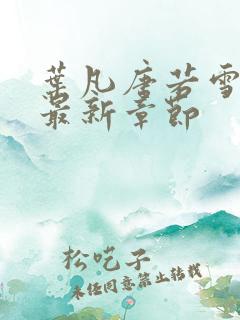 葉凡唐若雪
最新章節
松吃子
未经同意禁止转载